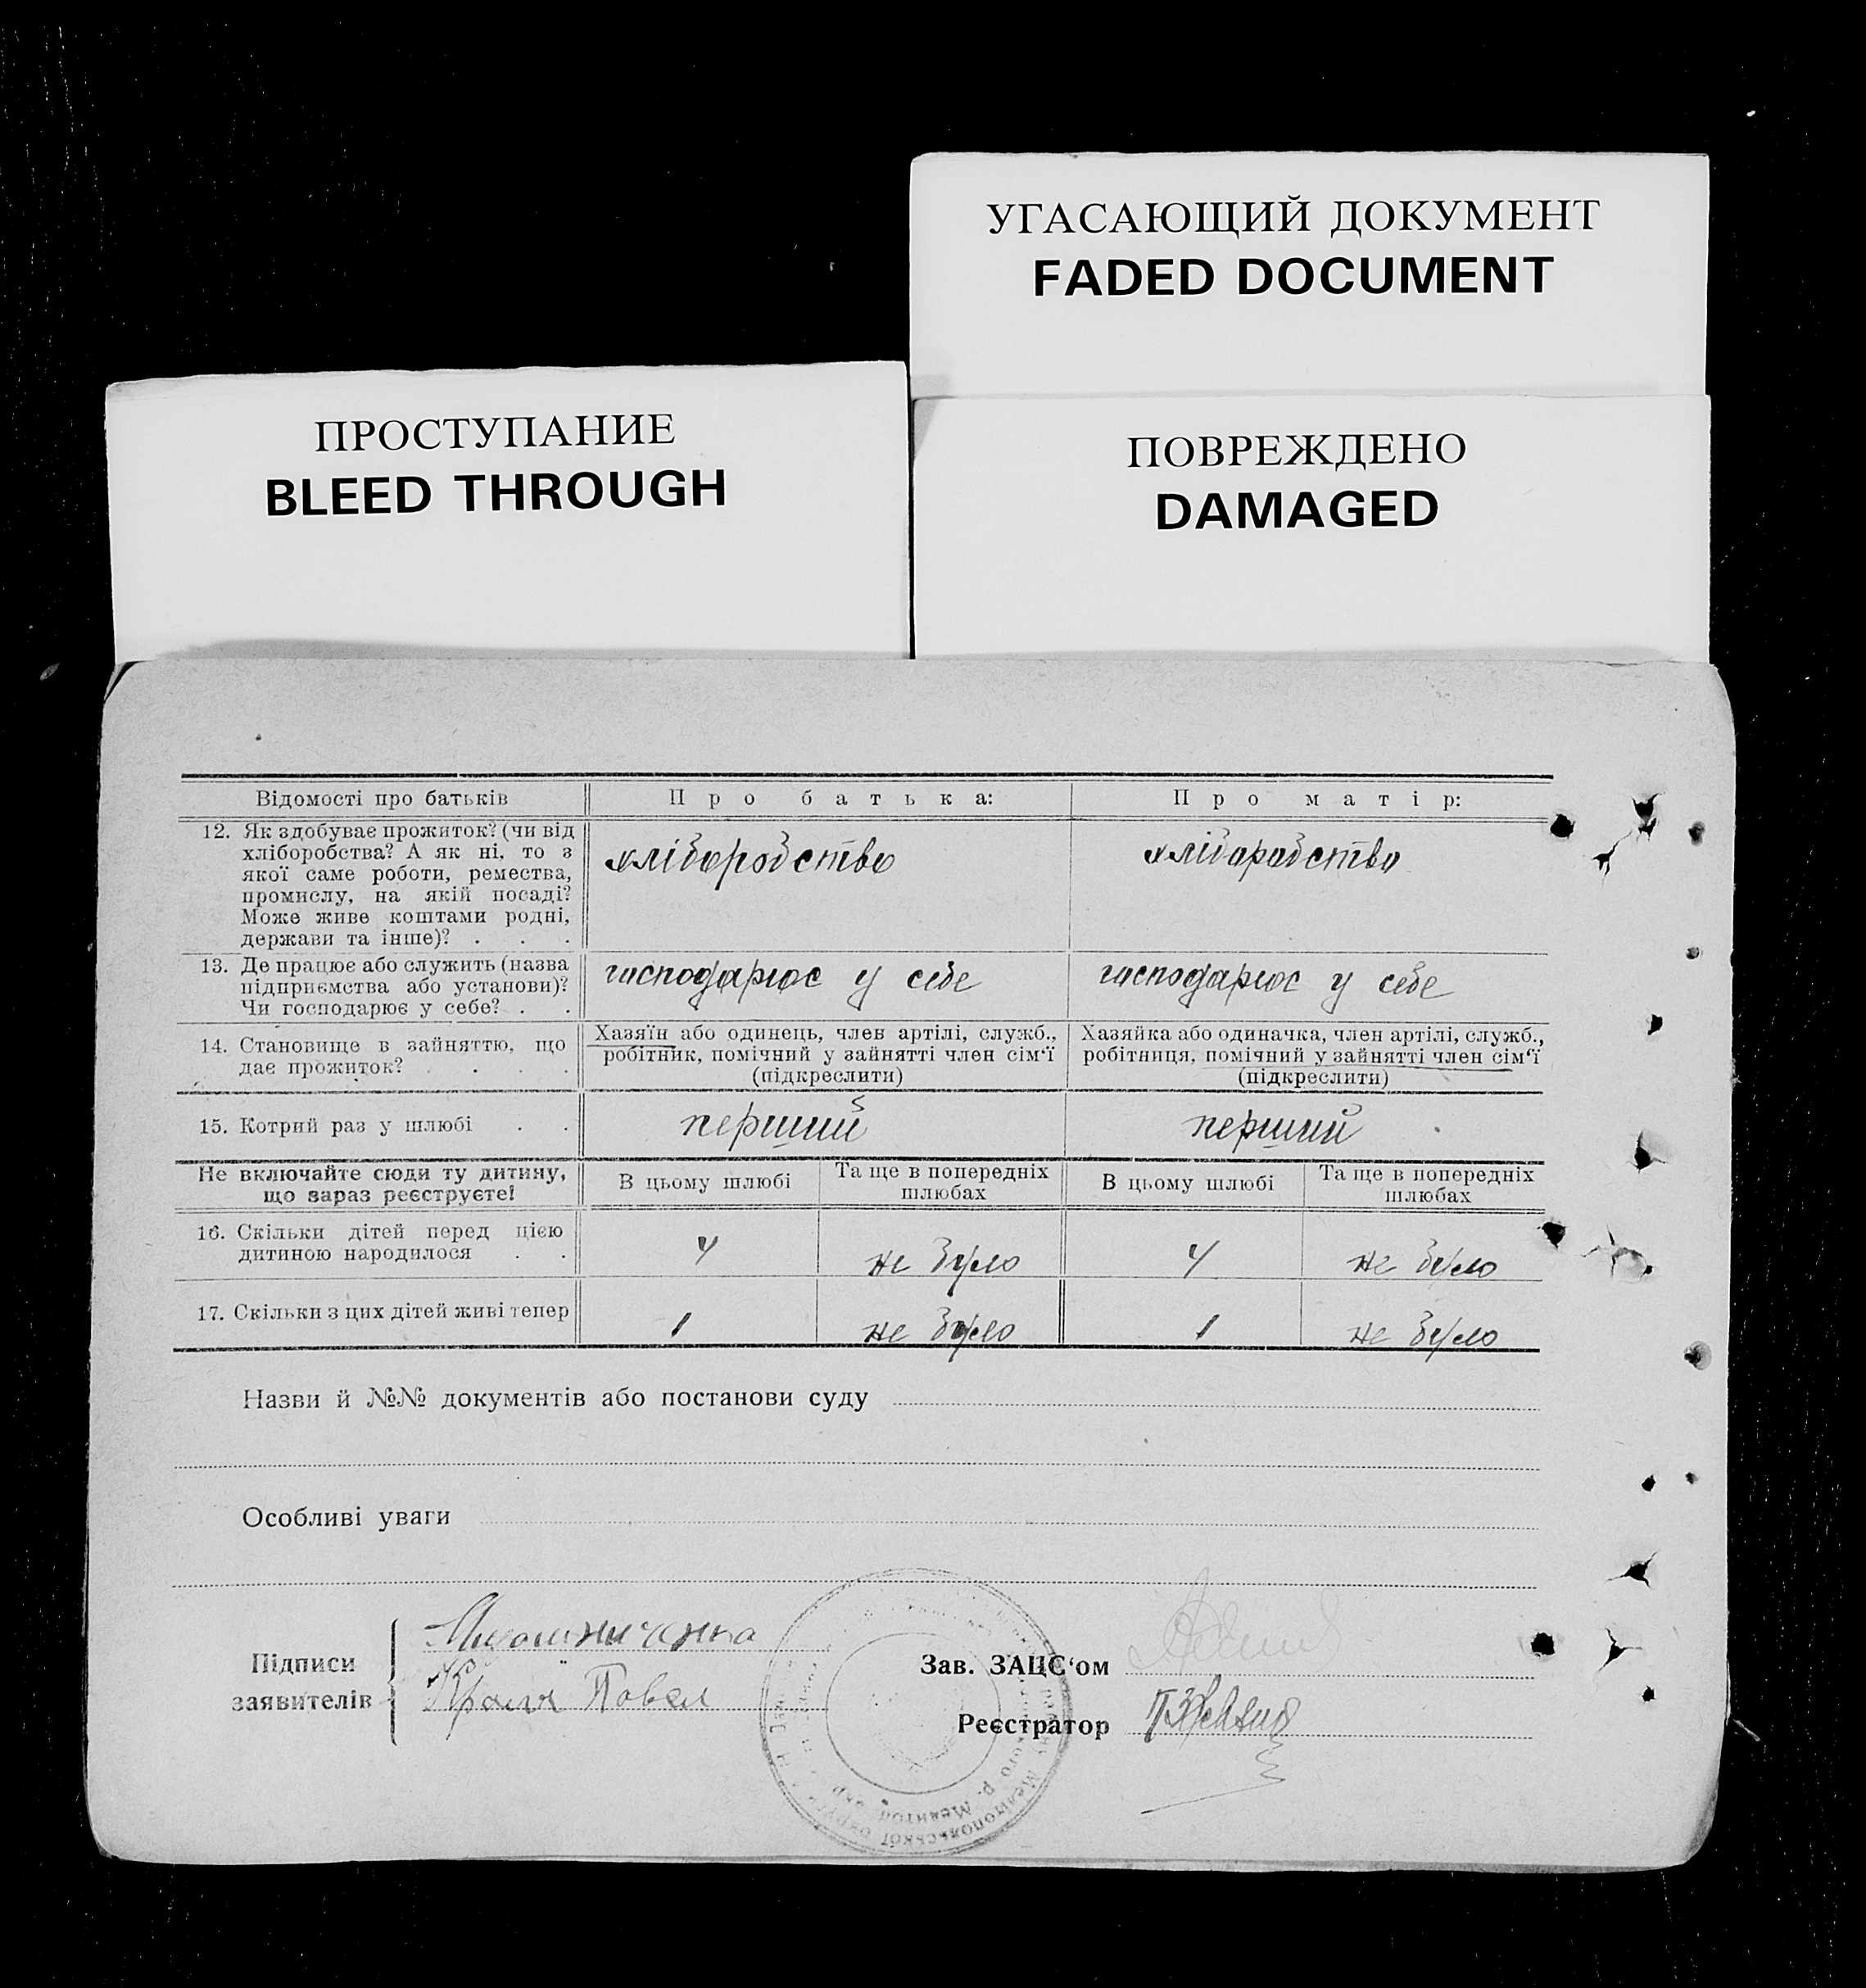 УГАСАЮЩИЙ ДОКУМЕНТ
FADED DOCUMENT
ПРОСТУПАНИЕ
BLEED THROUGH
ПОВРЕЖДЕНО
DAMAGED
Відомості про батьків
Про батька:
Про матір:
12. Як здобуває прожиток? (чи від
хліборобства? А як ні, то з
якої саме роботи, ремества,
промислу, на якій посаді?
Може живе коштами родні,
держави та інше)? . . .
хліборобство
хліборобство
13. Де працює або служить (назва
підприємства або установи)?
Чи господарює у себе? . .
господарює у себе
господарює у себе
14. Становище в зайняттю, що
дає прожиток? . . . .
Хазяїн або одинець, член артілі, служб.,
робітник, помічний у зайнятті член сім‘ї
(підкреслити)
Хазяйка або одиначка, член артілі, служб.,
робітниця, помічний у зайнятті член сім‘ї
(підкреслити)
15. Котрий раз у шлюбі . .
перший
перший
Не включайте сюди ту дитину,
що зараз реєструєте!
В цьому шлюбі
Та ще в попередніх
шлюбах
В цьому шлюбі
Та ще в попередніх
шлюбах
16. Скільки дітей перед цією
дитиною народилося . .
4
не було
4
не було
17. Скільки з цих дітей живі тепер
1
не було
1
не було
Назви й №№ документів або постанови суду
Особливі уваги
Підписи
заявителів
Павел
Зав. ЗАЦС‘ом
Реєстратор
Мелітопольської округи